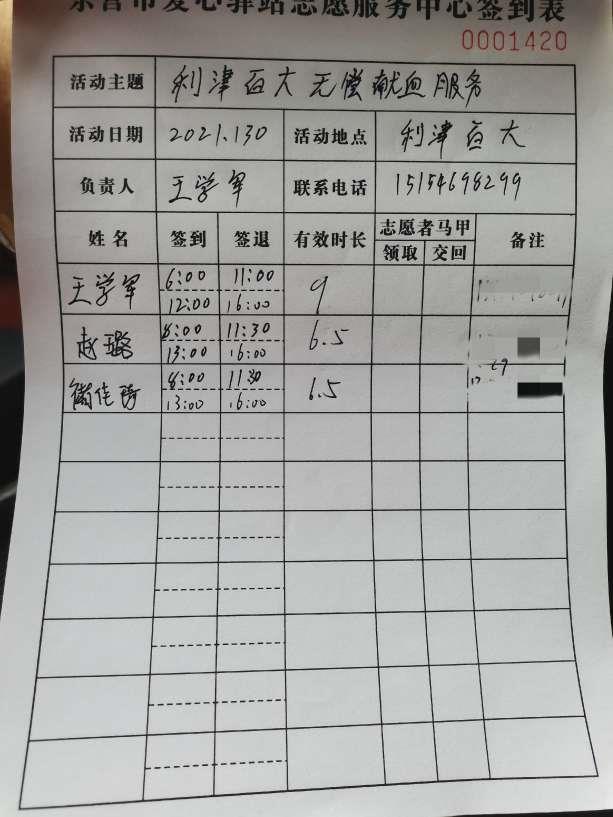 东营市爱心驿站志愿服务中心签到表
0001420
活动主题 利津百大无偿献血服务
活动日期 2021.130 活动地点 利津百大
负责人 王学军 联系电话 15154698299
姓名 签到 签退 有效时长 志愿者马甲 备注
领取 交回
王学军 6:00 11:00 9
12:00 16:00
赵璐 8:00 11:30 6.5
13:00 16:00
8:00 11:30 6.5
13:00 16:00